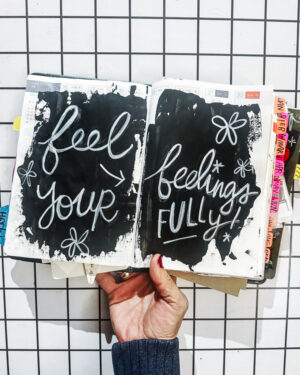 feel
YOUR
feelings
FULLY!